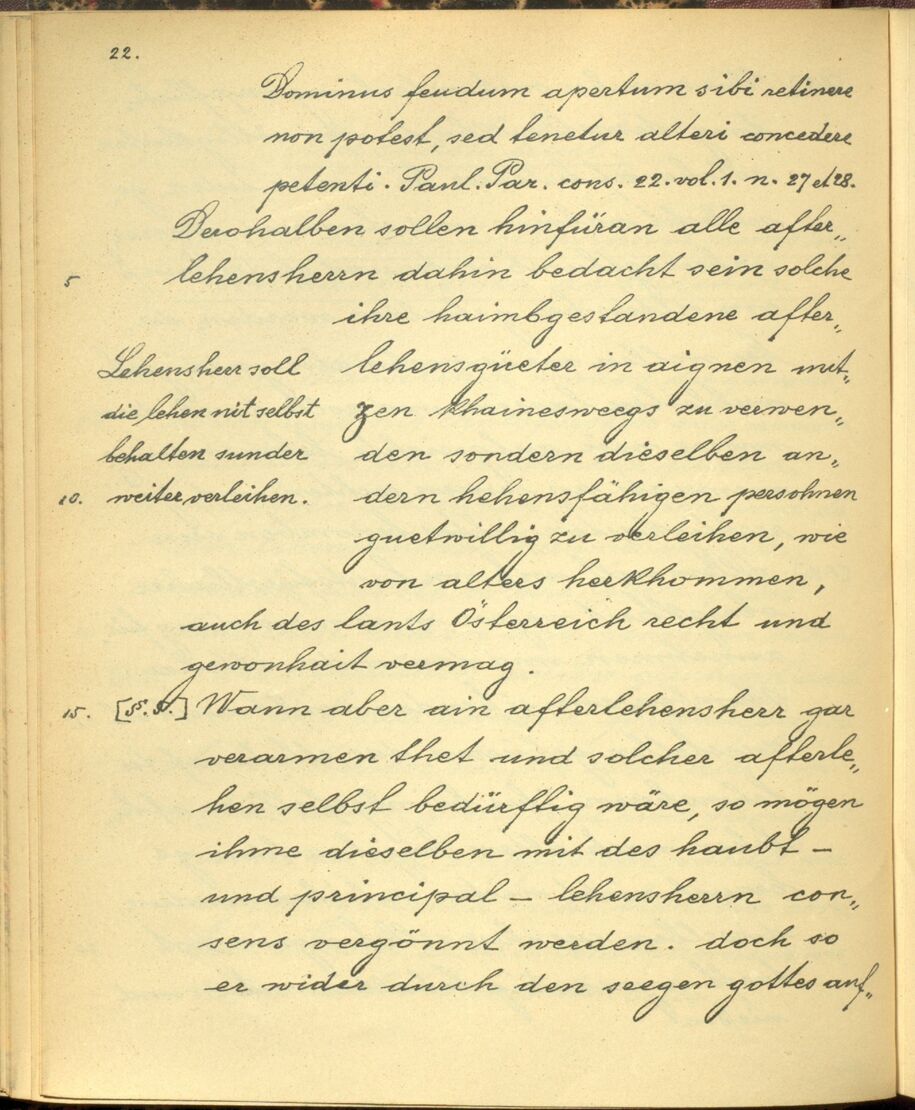 22.
Dominus feudum apertum sibi retinere
non potest, sed tenetur alteri concedere
petenti. Paul. Par. cons. 22. vol. 1. n. 27 et 28.
Derohalben sollen hinfüran alle after„
5 lehensherrn dahin bedacht sein solche
ihre haimbgestandene after„
Lehensherr soll
die lehen nit selbst
behalten sunder
10. weiter verleihen.
lehensgüeter in aignen nut„
zen khainesweegs zu verwen„
den sondern dieselben an„
dern hehensfähigen persohnen
guetwillig zu verleihen, wie
von alters herkhommen,
auch des lants Österreich recht und
gewonhait vermag.
15. [§. 5.] Wann aber ain afterlehensherr gar
verarmen thet und solcher afterle„
hen selbst bedürftig wäre, so mögen
ihme dieselben mit des haubt –
und principal – lehensherrn con„
sens vergönnt werden. doch so
er wider durch den seegen gottes auf„